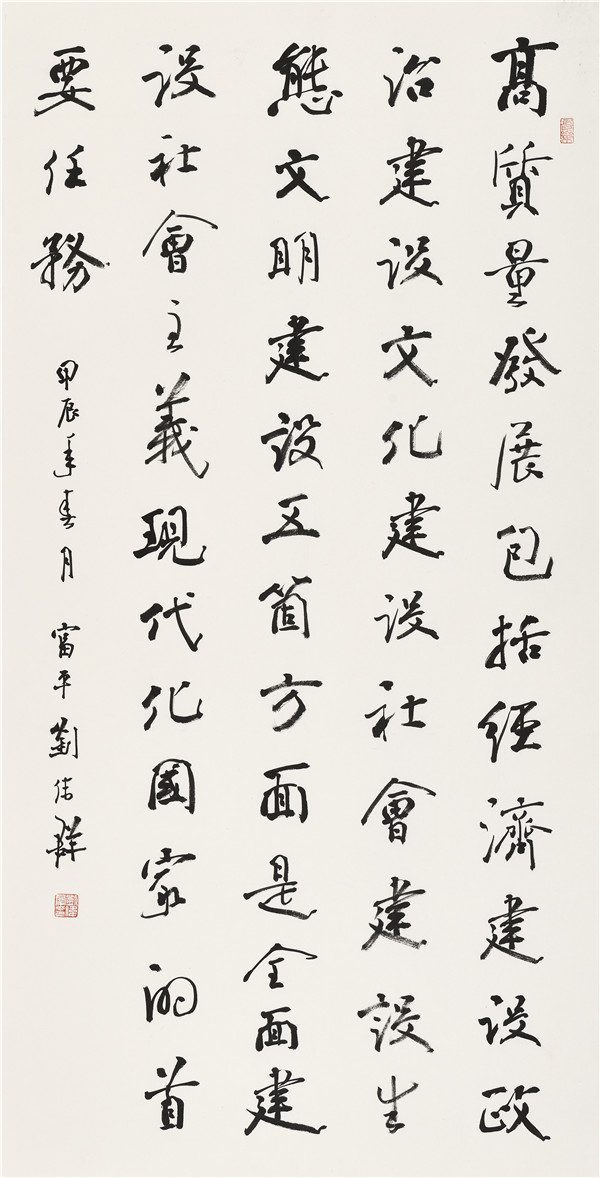 高質量發展包括經濟建設政
治建設文化建設社會建設生
態文明建設五箇方面是全面建
設社會主義現代化國家的首
要任務
甲辰年春月 富平劉偉群